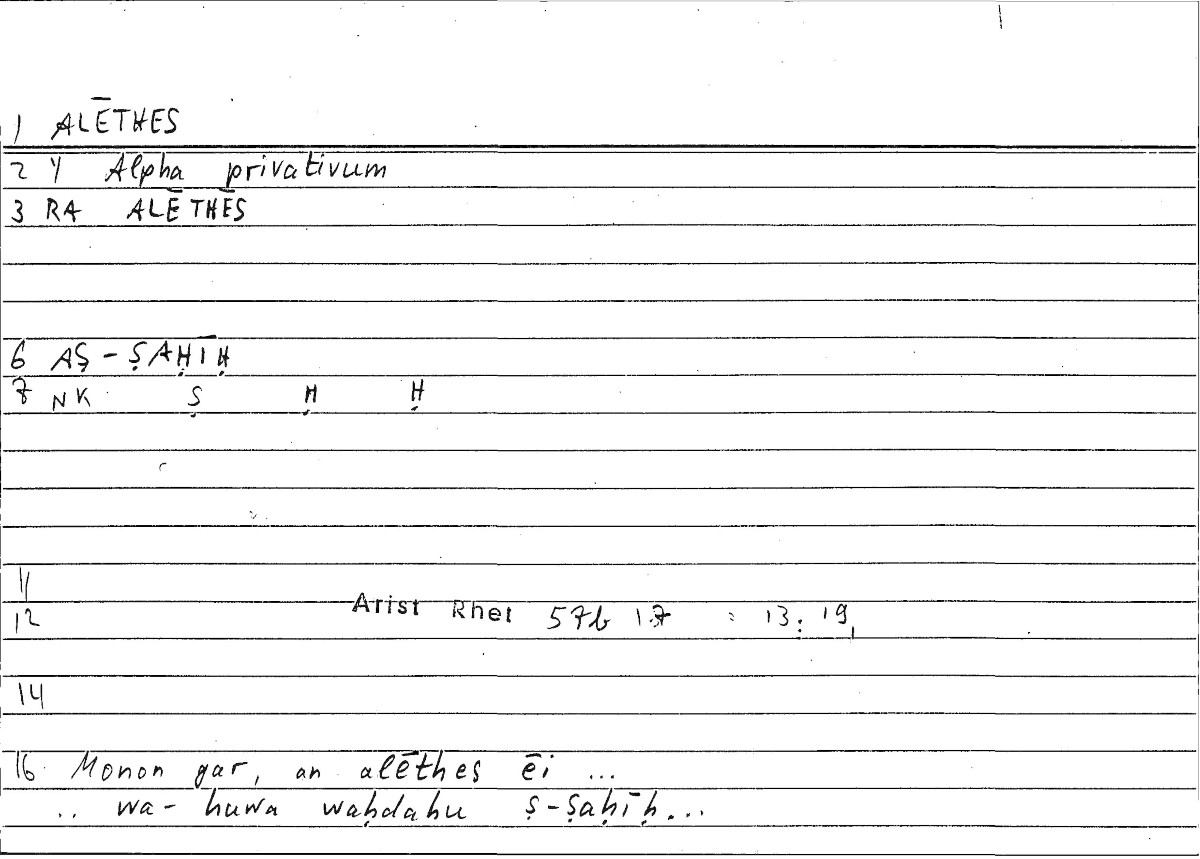 1 ALĒTHES
2 1) Alpha privativum
3 RA ALĒTHĒS
6 AṢ-ṢAḤĪḤ
7 NK Ṣ Ḥ Ḥ
11
12 Arist Rhet 57b 17 : 13. 19,
14
16 Monon gar, an alēthes ēi ...
.. wa-huwa waḥdahu ṣ-ṣaḥīḥ...